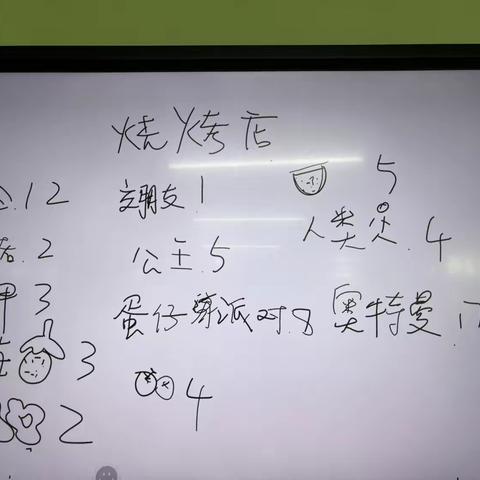 烧烤店
12 交朋友 1 5
2 公主.5 人类 4
甲 3 蛋仔派对.8 奥特曼.1
3
4
2